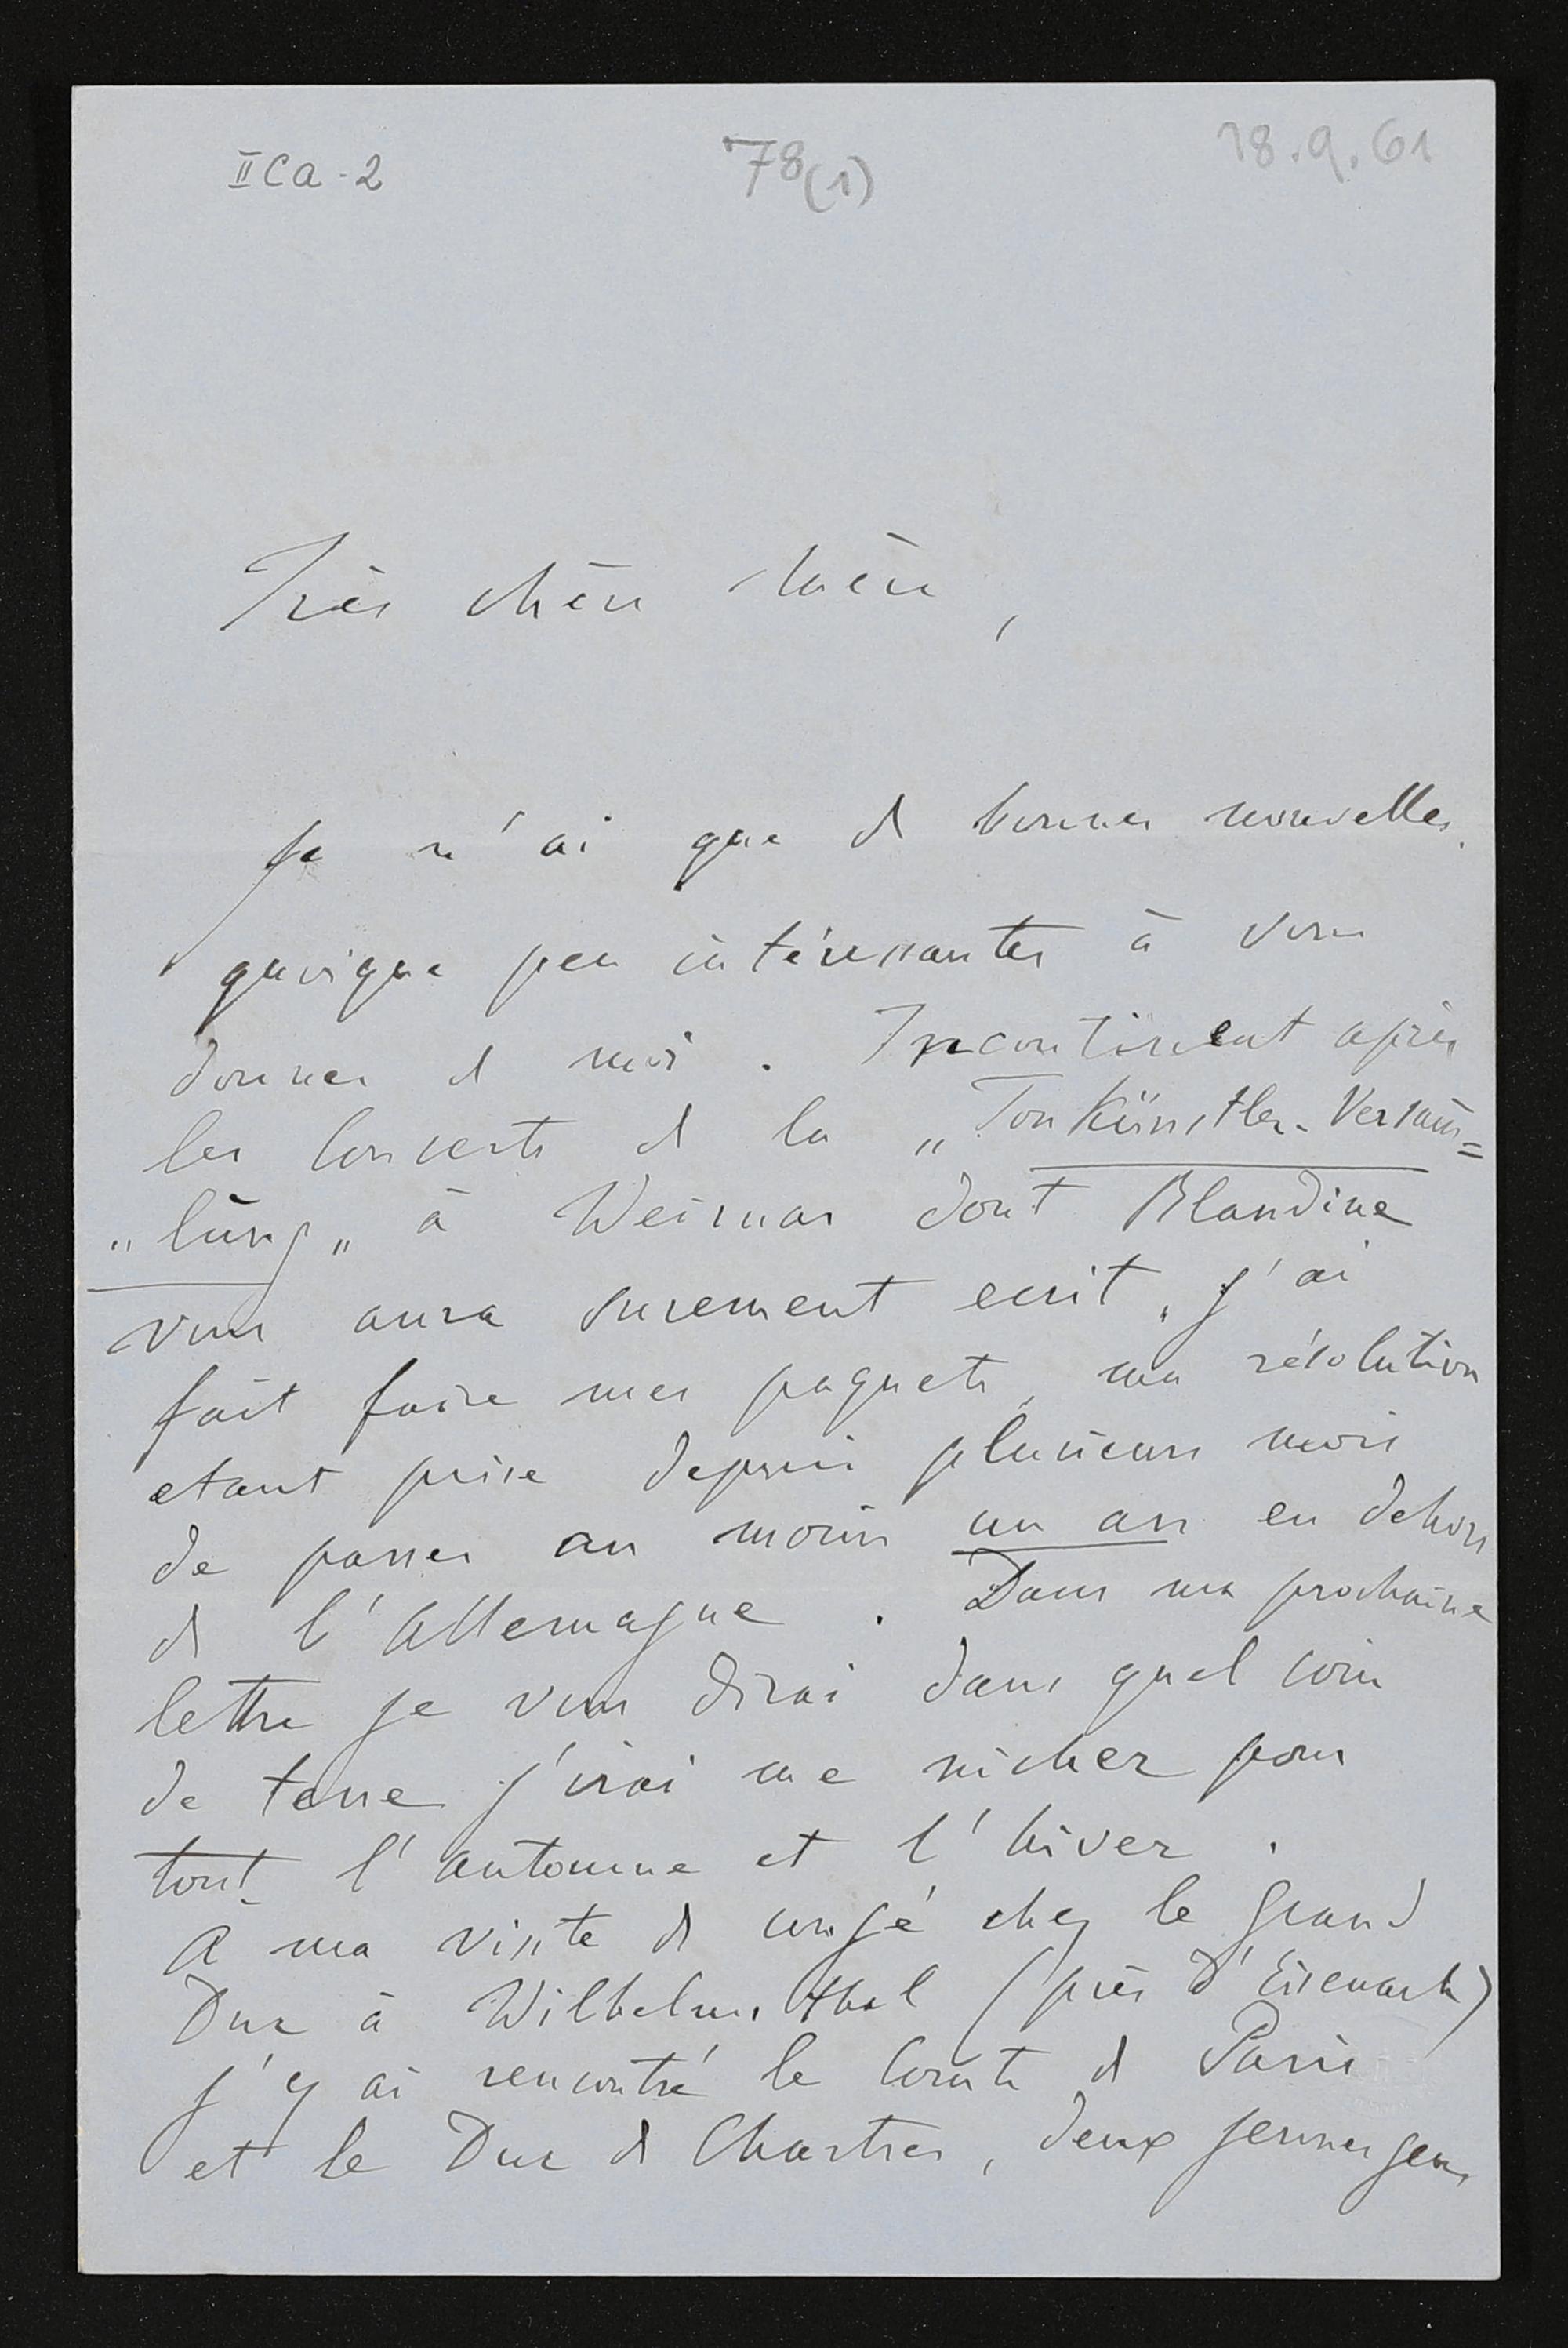 II Ca - 2
78(1)
18.9.61
Très chère Mère,
Je n'ai que de bonnes nouvelles,
quoique peu intéressantes à vous
donner de moi. Incontinent après
les Concerts de la „Tonkünstler-Versam̄=
„lŭng„ à Weimar dont Blandine
vous aura surement ecrit, j'ai
fait faire mes paquets, ma résolution
etant prise depuis plusieurs mois
de passer au moins un an en dehors
de l'Allemagne. Dans ma prochaine
lettre je vous dirai dans quel coin
de terre j'irai me nicher pour
tout l'automne et l'hiver.
A ma visite de congé chez le Grand
Duc à Wilhelmsthal (près d'Eisenach)
j'y ai rencontré le Comte de Paris
et le Duc de Chartres, deux jeunes gens